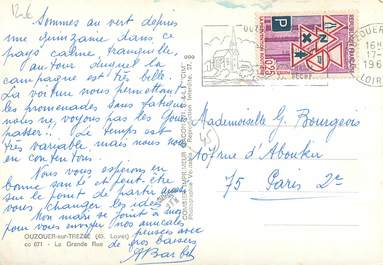 12-6
Sommes au vert depuis
une quinzaine dans ce
pays calme, tranquille,
autour duquel la
campagne est très belle.
La voiture nous permettant
les promenades sans fatigue
nous ne voyons pas les jours
passer!! Le temps est
très variable mais nous nous
en contentons.
Nous vous espérons en
bonne santé et peut-être
sur le point de partir aussi
vous changer les idées
Mon mari se joint à moi
pour vous envoyer nos amicales
pensées avec
de gros baisers
G Barbe
OUZOUER-sur-TREZEE (G. Loiret)
co 671 - La Grande Rue
COMBIER IMPRIMEUR MACON "CIM"
Reproduction Interdite.
OUZOUER
16H
17-
196
LOIR
PECHE
REPUBLIQUE FRANÇAISE
0,25
LA PREVENTION ROUTIERE
P
45
Mademoiselle G. Bourgeois
107 rue d'Aboukir
75 Paris 2e